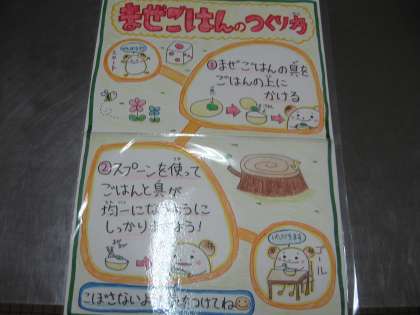 まぜごはんのつくり方
スタート
①まぜごはんの具を
ごはんの上に
かける
②スプーンを使って
ごはんと具が
均一になるように
しっかりまぜよう！
いただきます
ゴール
こぼさないように気をつけてね